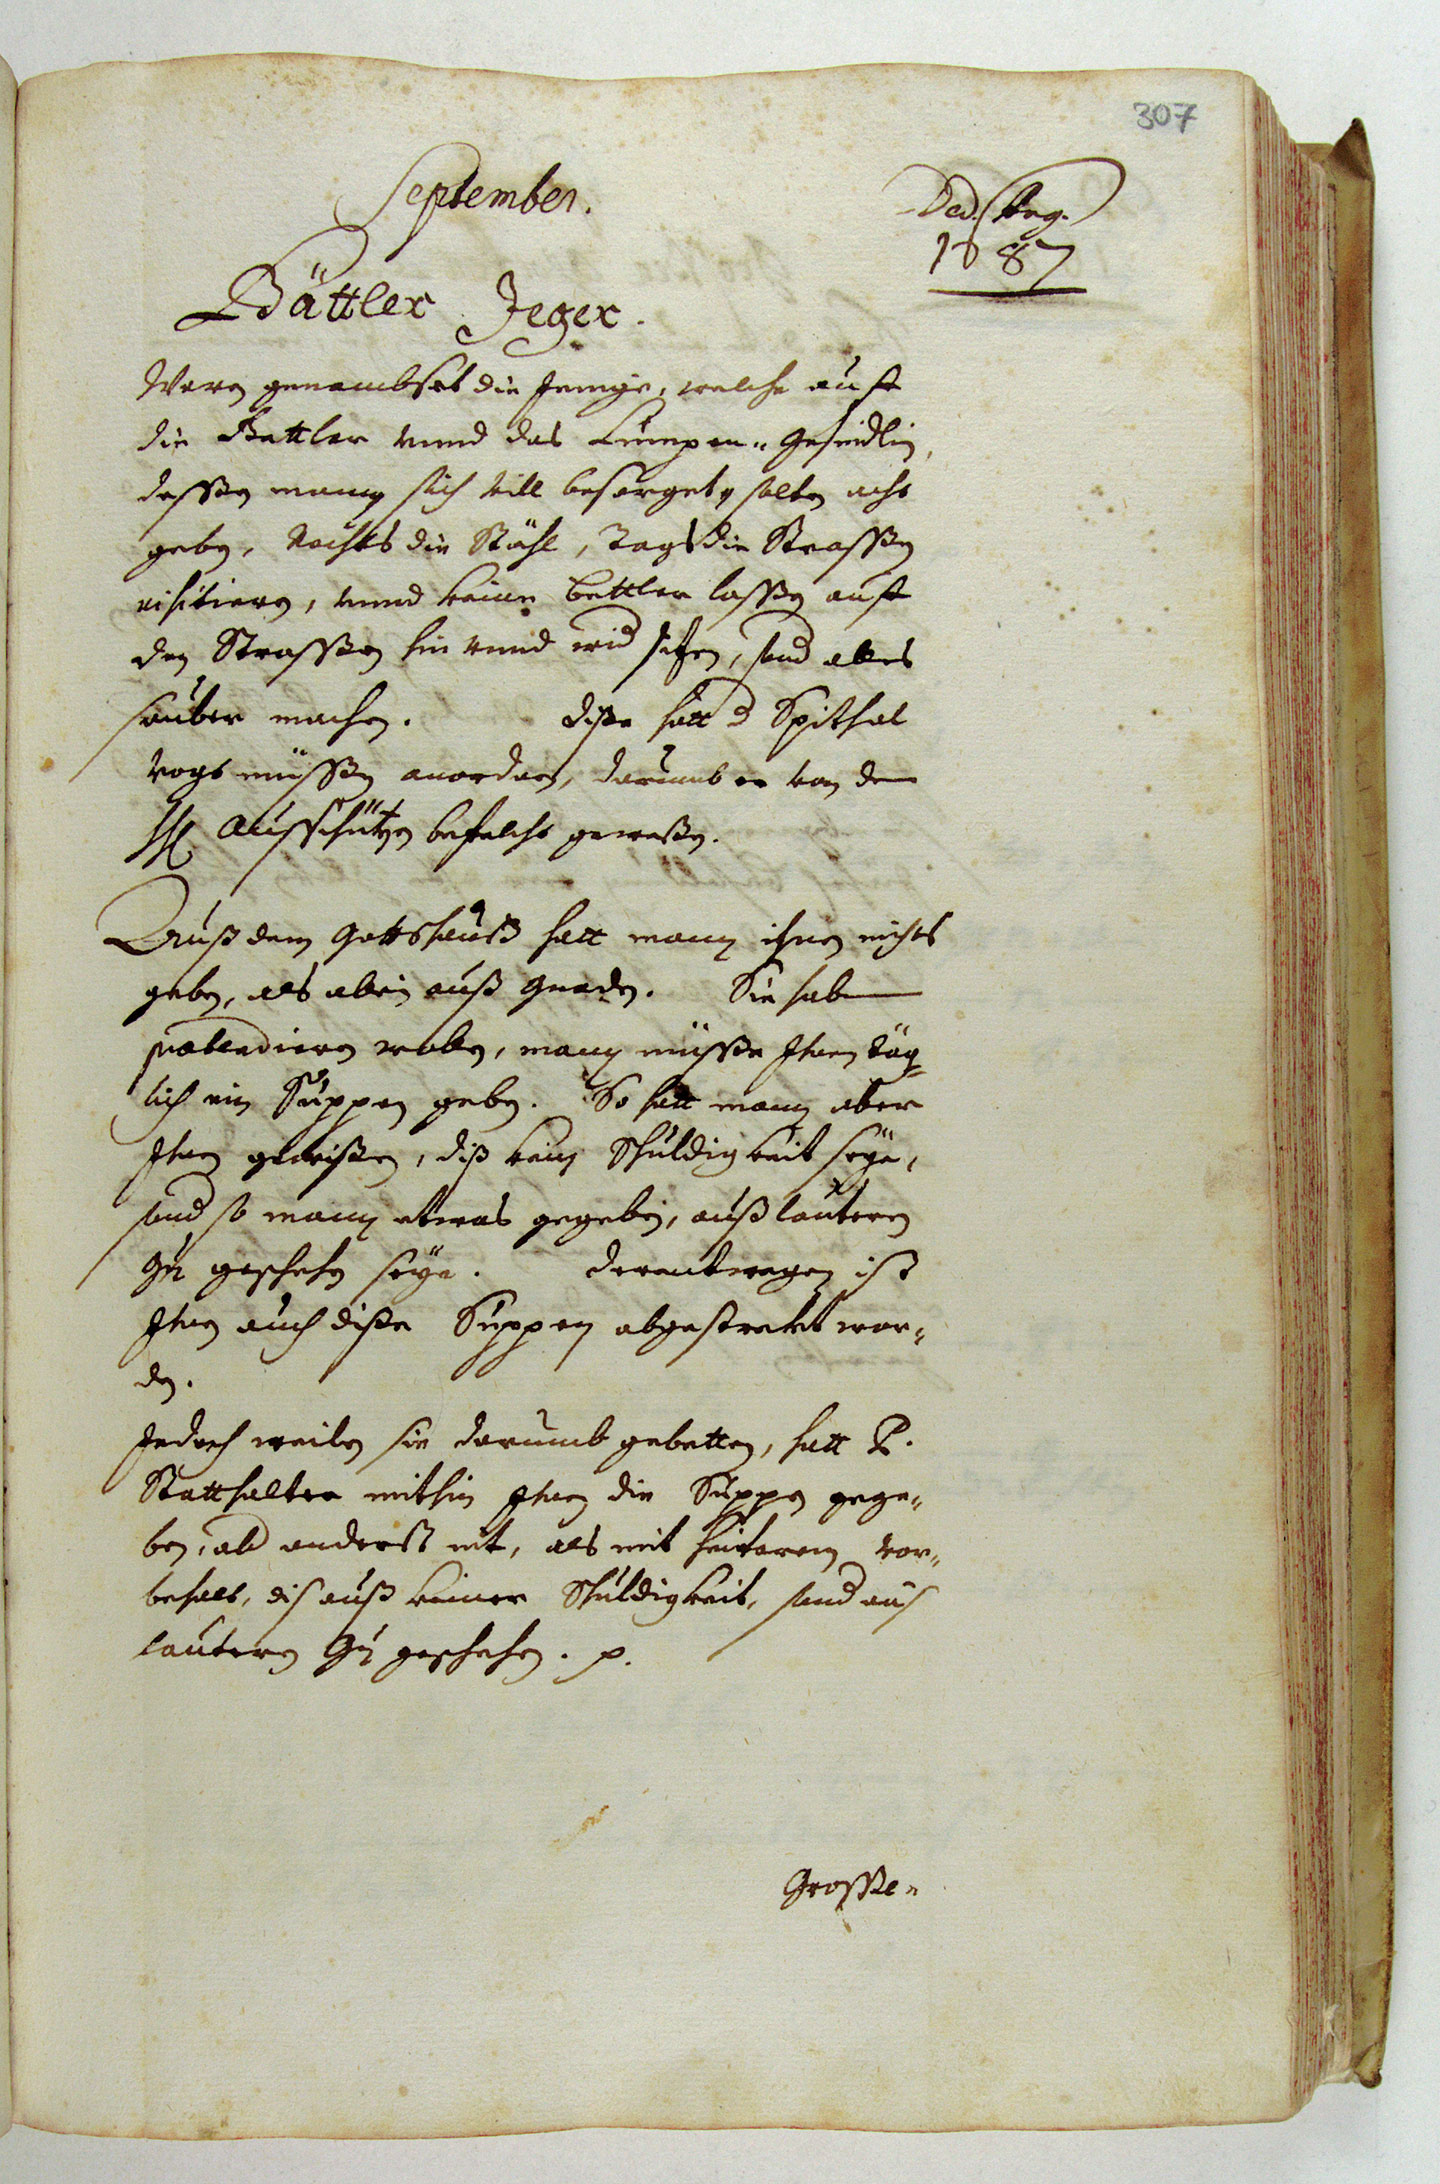 307
September.
Ded. Aug.
1687
Bättler Jeger.
Waren genambset die Jenige, welche auff
die Bettler vnnd das Lumpen- Gesindlin,
dessen mann sich vill besorget, solten acht
geben, Nachts die Stähl, Tags die Strassen
visitieren, vnnd keine bettler lassen auff
den Strassen hin vnnd wid , sond alles
sauber machen. dise hatt d Spithal
Vogt müssen anorden, darumb er von den
HH Ausschützen befelcht gewesen.
Auß dem Gottshauß hatt mann ihnen nichts
geben, als allein auß Gnaden. Sie haben
praetendieren wollen, mann müsse Ihnen täg-
lich ein Suppen geben. So hatt mann aber
Ihnen gewisen, diß kein Schuldigkeit seye,
sond so mann etwas gegeben, auß lauteren
Gn geschehen seye. derentwegen ist
Ihnen auch dise Suppen abgestrekt wor-
den.
Jedoch weilen sie darumb gebetten, hatt P.
Statthalter mithin Ihnen die Suppen gege-
ben, ab anderst nit, als mit heiterem vor-
behalt, dis auß keiner Schuldigkeit, sond aus
lauteren Gn geschehen. p.
Grosse-